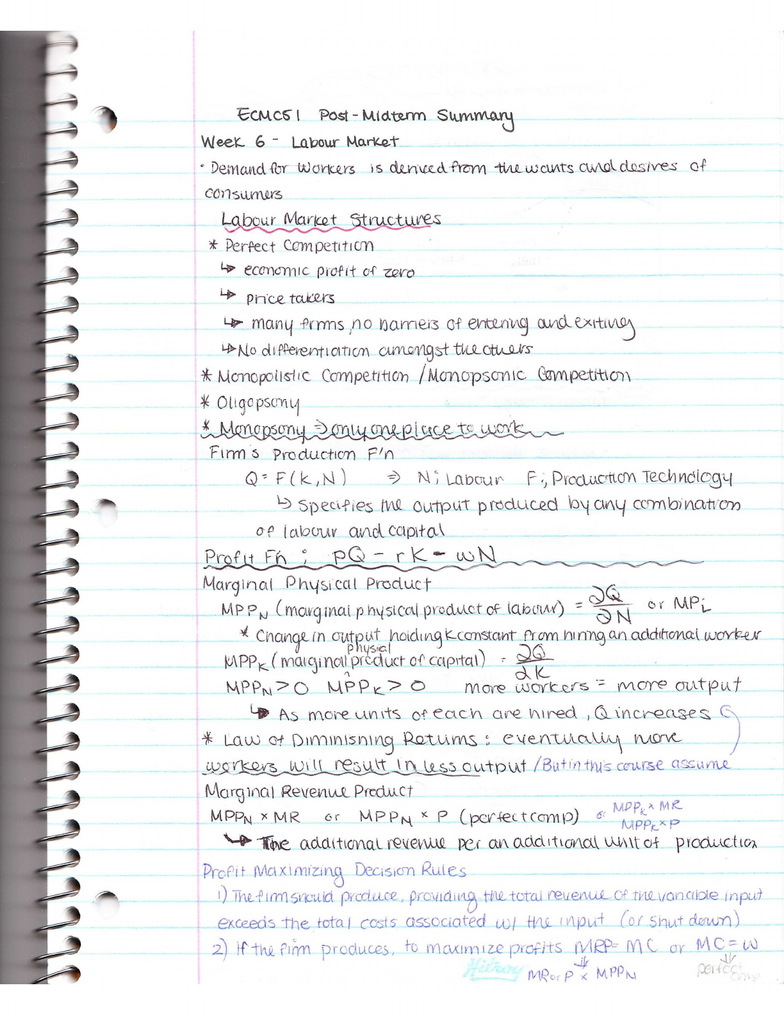 ECMC51 Post-Midterm Summary
Week 6 - Labour Market
· Demand for workers is derived from the wants and desires of
consumers
Labour Market Structures
* Perfect Competition
↳ economic profit of zero
↳ price takers
↳ many firms, no barriers of entering and exiting
↳ No differentiation amongst the others
* Monopolistic Competition / Monopsonic Competition
* Oligopsony
* Monopsony ⇒ only one place to work
Firm's Production F'n
Q = F(K,N) ⇒ N; Labour F; Production Technology
↳ Specifies the output produced by any combination
of labour and capital
Profit Fn : pQ - rK - wN
Marginal Physical Product
MPPN (marginal physical product of labour) = ∂Q/∂N or MPL
* Change in output holding K constant from hiring an additional worker
MPPK (marginal physical product of capital) = ∂Q/∂K
MPPN > 0 MPPK > 0 more workers = more output
↳ As more units of each are hired, Q increases
* Law of Diminishing Returns : eventually more
workers will result in less output / But in this course assume
Marginal Revenue Product
MPPN × MR or MPPN × P (perfect comp) or MPPK × MR
MPPK × P
↳ The additional revenue per an additional unit of production
Profit Maximizing Decision Rules
1) The firm should produce, providing the total revenue of the variable input
exceeds the total costs associated w/ the input (or shut down)
2) If the firm produces, to maximize profits MRP = MC or MC = w
Hilroy MR or P × MPPN perfect comp